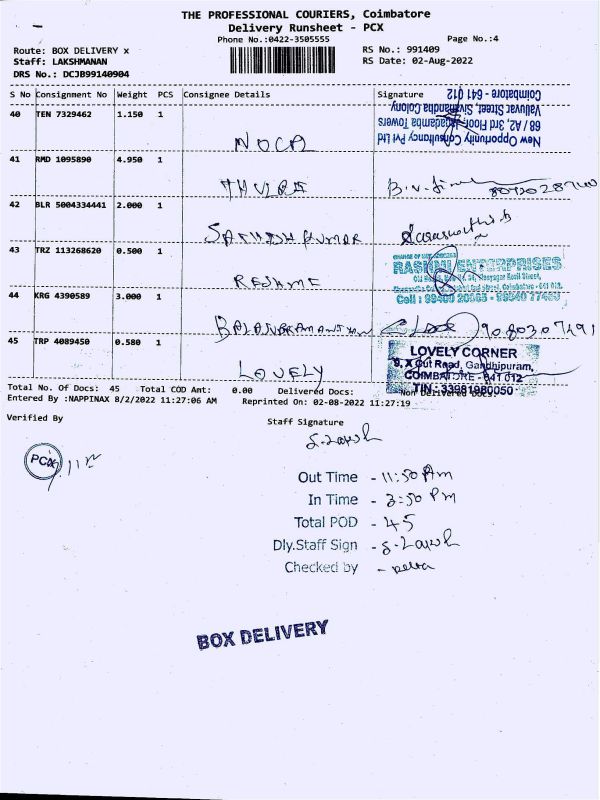 THE PROFESSIONAL COURIERS, Coimbatore
Delivery Runsheet - PCX
Phone No.:0422-3505555
Page No.:4
Route: BOX DELIVERY x
RS No.: 991409
Staff: LAKSHMANAN
RS Date: 02-Aug-2022
DRS No.: DCJB99140904
S No Consignment No Weight PCS Consignee Details Signature
New Opportunity Consultancy Pvt Ltd
68 / A2, 3rd Floor, Jagadamba Towers
Valluvar Street, Sivanandha Colony
Coimbatore - 641 012
40 TEN 7329462 1.150 1
NOCPL
41 RMD 1095890 4.950 1
42 BLR 5004334441 2.000 1
SATHISHKUMAR
43 TRZ 113268620 0.500 1
RASHMI ENTERPRISES
44 KRG 4390589 3.000 1
9080207491
45 TRP 4089450 0.580 1
LOVELY
LOVELY CORNER
9, X Cut Road, Gandhipuram,
COIMBATORE - 641 012
TIN : 33981980050
Total No. Of Docs: 45 Total COD Amt: 0.00 Delivered Docs: Non Delivered Docs:
Entered By :NAPPINAX 8/2/2022 11:27:06 AM Reprinted On: 02-08-2022 11:27:19
Verified By
Staff Signature
PCX
Out Time - 11:50 Am
In Time - 3:50 Pm
Total POD - 45
Dly.Staff Sign -
Checked by -
BOX DELIVERY